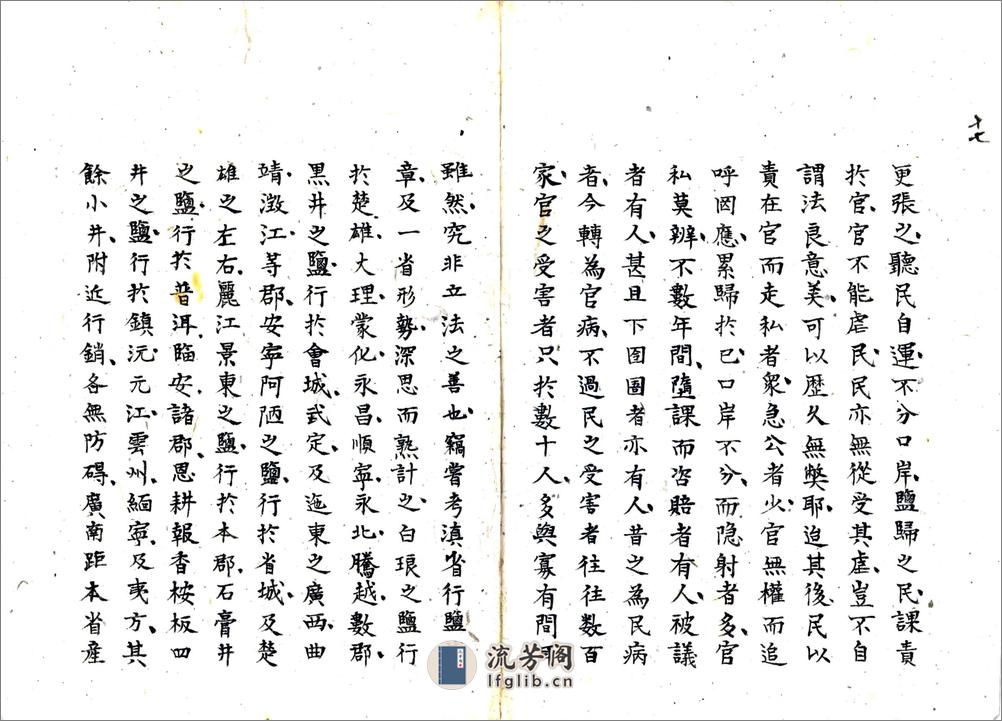 十七
更張之聽民自運不分口岸鹽歸之民課責
於官官不能虐民民亦無從受其虐豈不自
謂法良意美可以歷久無獘耶迨其後民以
責在官而走私者衆急公者少官無權而追
呼罔應累歸於已口岸不分而隐射者多官
私莫辨不數年間隳課而咨賠者有人被議
者有人甚且下囹圄者亦有人昔之為民病
者今轉為官病不過民之受害者往往數百
家官之受害者只於數十人多與寡有間耳
雖然究非立法之善也竊嘗考滇省行鹽
章及一省形勢深思而熟計之白琅之鹽行
於楚雄大理蒙化永昌順寧永北騰越數郡
黒井之鹽行於會城武定及迤東之廣西曲
靖澂江等郡安寧阿陋之鹽行於省城及楚
雄之左右麗江景東之鹽行於本郡石膏井
之鹽行於普洱臨安諸郡思耕報香桉板四
井之鹽行於鎮沅元江雲州緬寧及夷方其
餘小井附近行銷各無防碍廣南距本省産
流芳閣
lfglib.cn